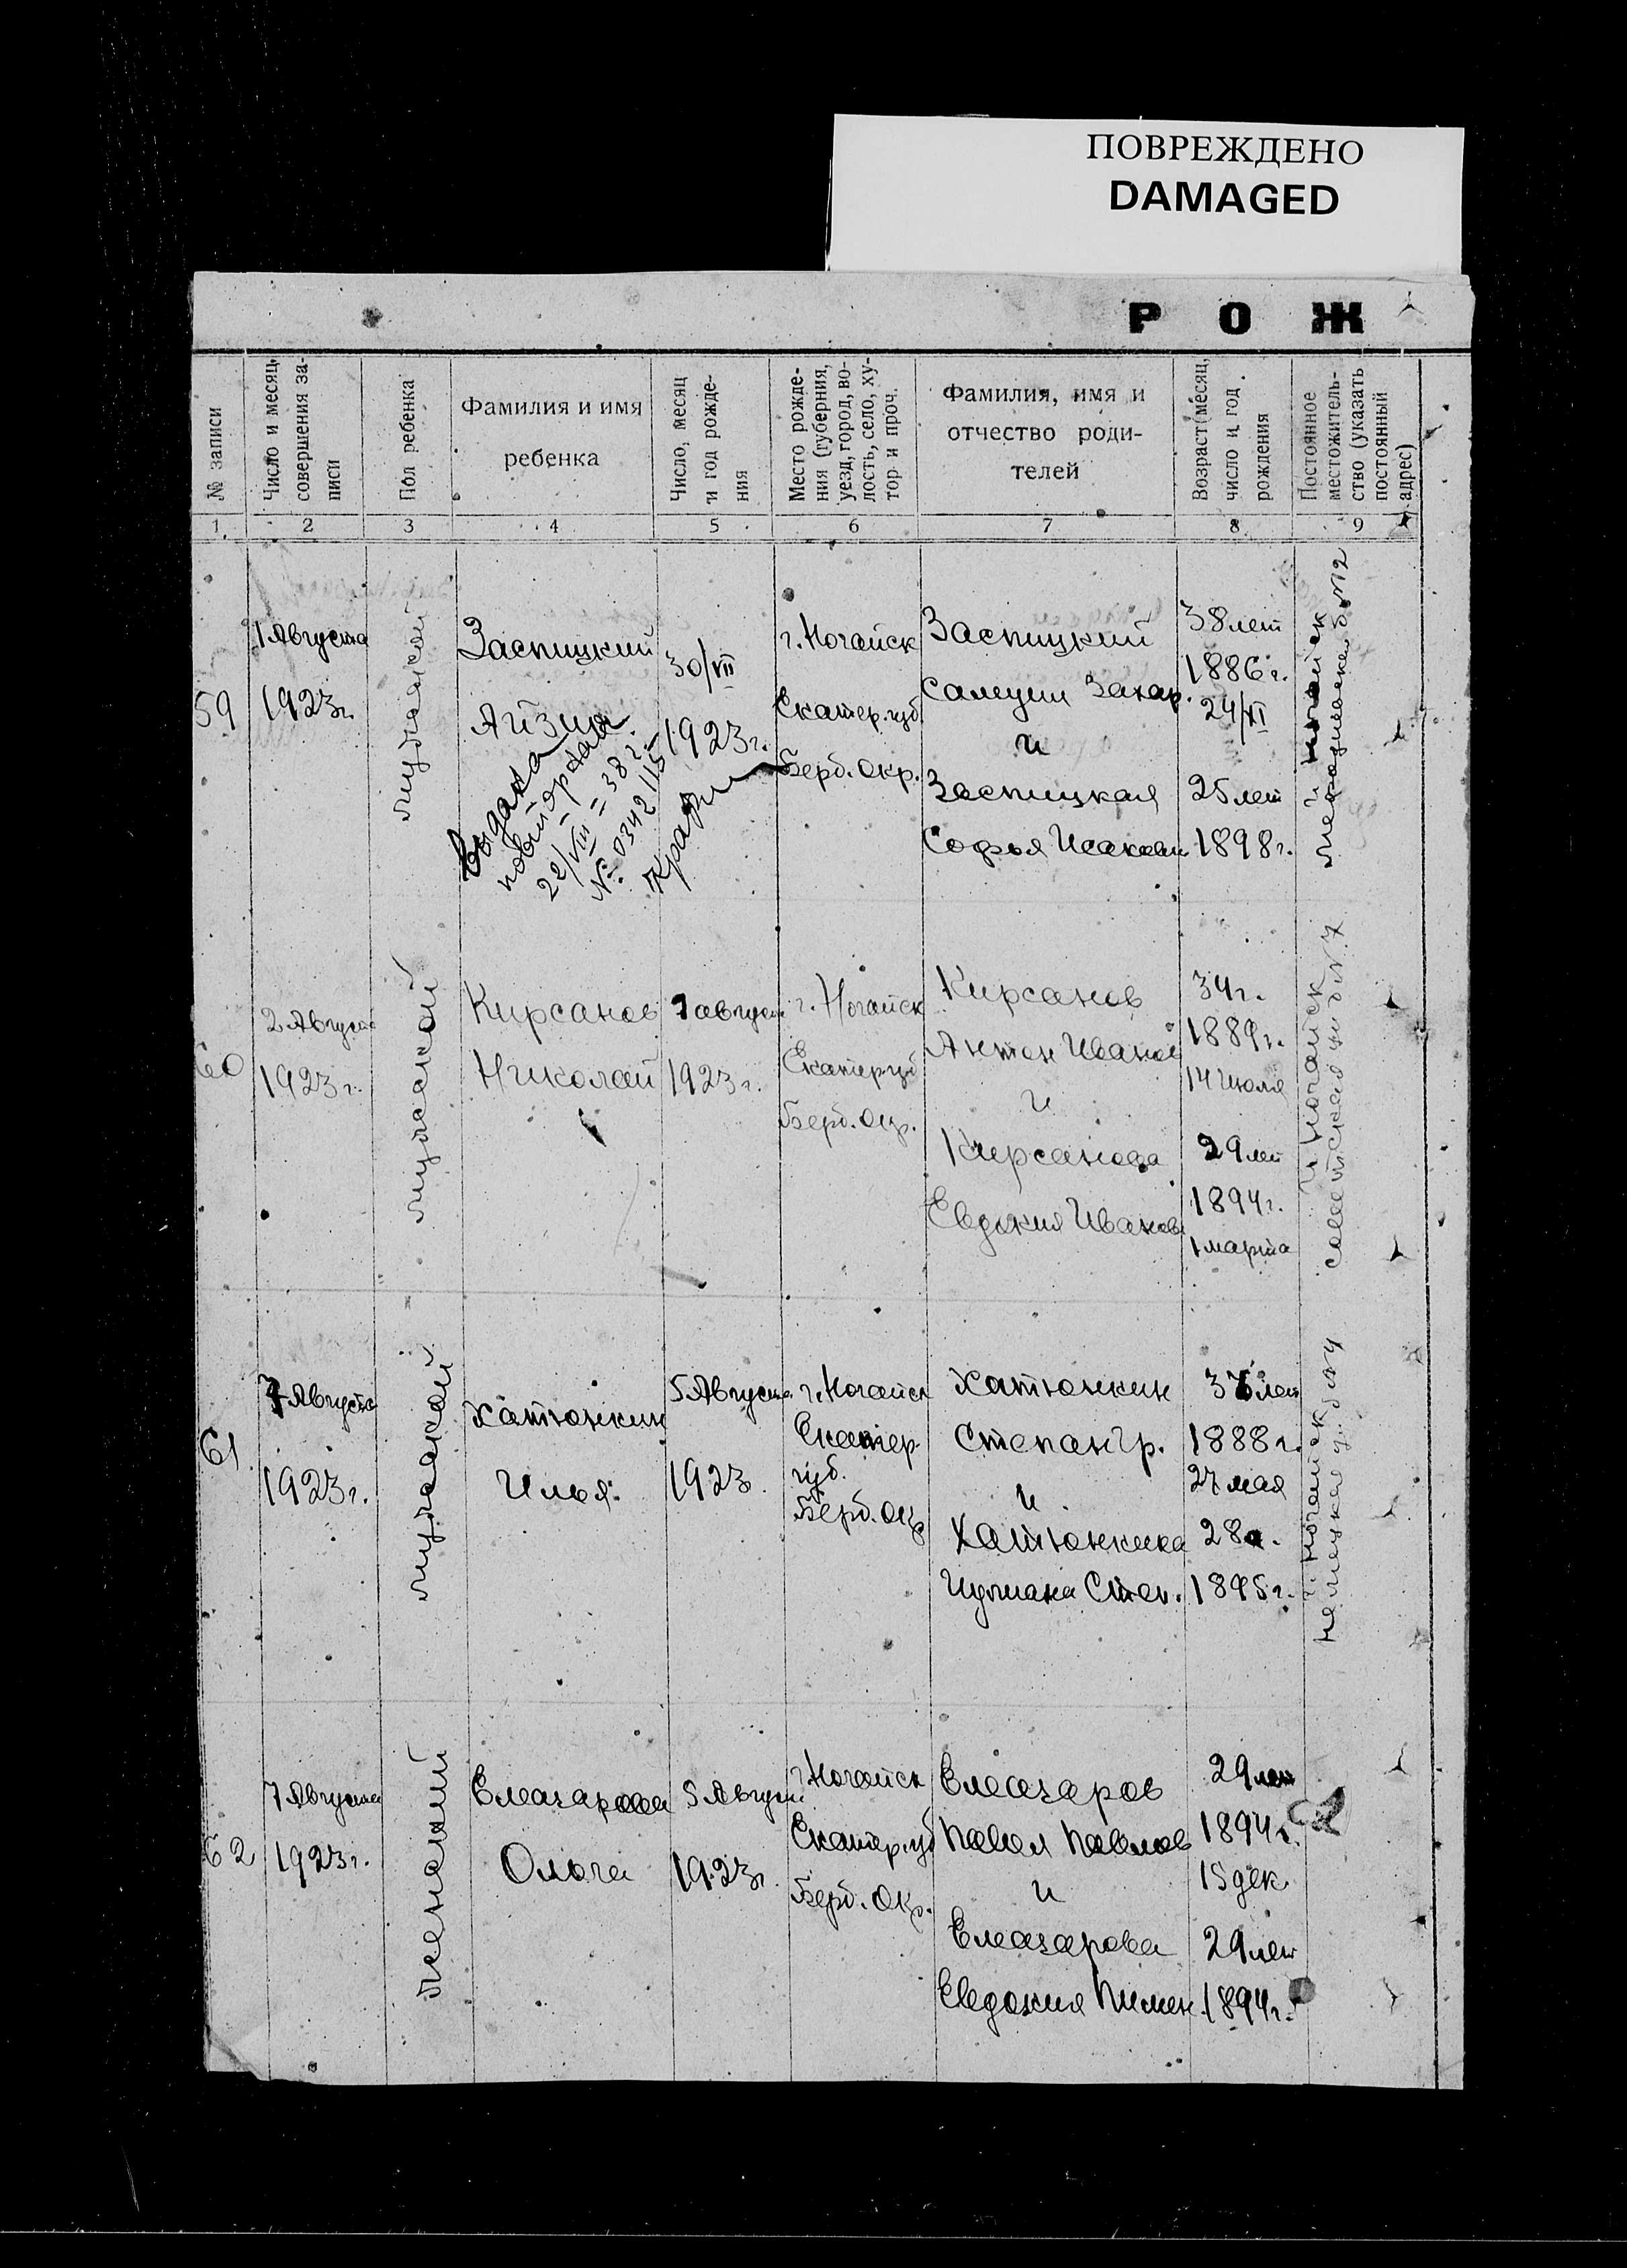 ПОВРЕЖДЕНО
DAMAGED
Р О Ж
№ записи
Число и месяц
совершения за-
писи
Пол ребенка
Фамилия и имя
ребенка
Число, месяц
и год рожде-
ния
Место рожде-
ния (губерния,
уезд, город, во-
лость, село, ху-
тор и проч.
Фамилия, имя и
отчество роди-
телей
Возраст (месяц,
число и год
рождения
Постоянное
местожитель-
ство (указать
постоянный
адрес)
1 2 3 4 5 6 7 8 9
59
1 Августа
1923г.
мужской
Заспицкий
Айзик
Выдана
новый
22/VIII = 38 г.
№ 0342115
30/VII
1923г.
г. Ногайск
Екатер. губ
Берд. окр.
Заспицкий
Захар.
и
Заспицкая
Софья Исаковн
38 лет
1886 г.
24/XI
25 лет
1898 г.
г. Ногайск
№12
60
2 Августа
1923 г.
мужской
Кирсанов
Николай
1 август
1923 г.
г. Ногайск
Екатер губ
Берд. окр.
Кирсанов
Антон Иванов
и
Кирсанова
Евдокия Иванов
34 г.
1889 г.
14 июля
29 лет
1894 г.
1 марта
г. Ногайск
советская ул. д. № 7
61
7 Августа
1923 г.
мужской
Хатюнкин
Илья
5 Августа
1923
г. Ногайск
Екатер.
губ.
Берд. окр
Хатюнкин
Степан Гр.
и
Хатюнкина
Степ.
лет
1888 г.
27 мая
28
1895 г.
г. Ногайск
немецкая у. д. №4
62
7 Августа
1923 г.
женский
Елеазарова
Ольга
5 Август
1923г.
г. Ногайск
Екатер. губ
Берд. окр.
Елеазаров
Павел Павлов
и
Елеазарова
Евдокия Пимен.
29 лет
1894 г.
15 дек.
29 лет
1894 г.